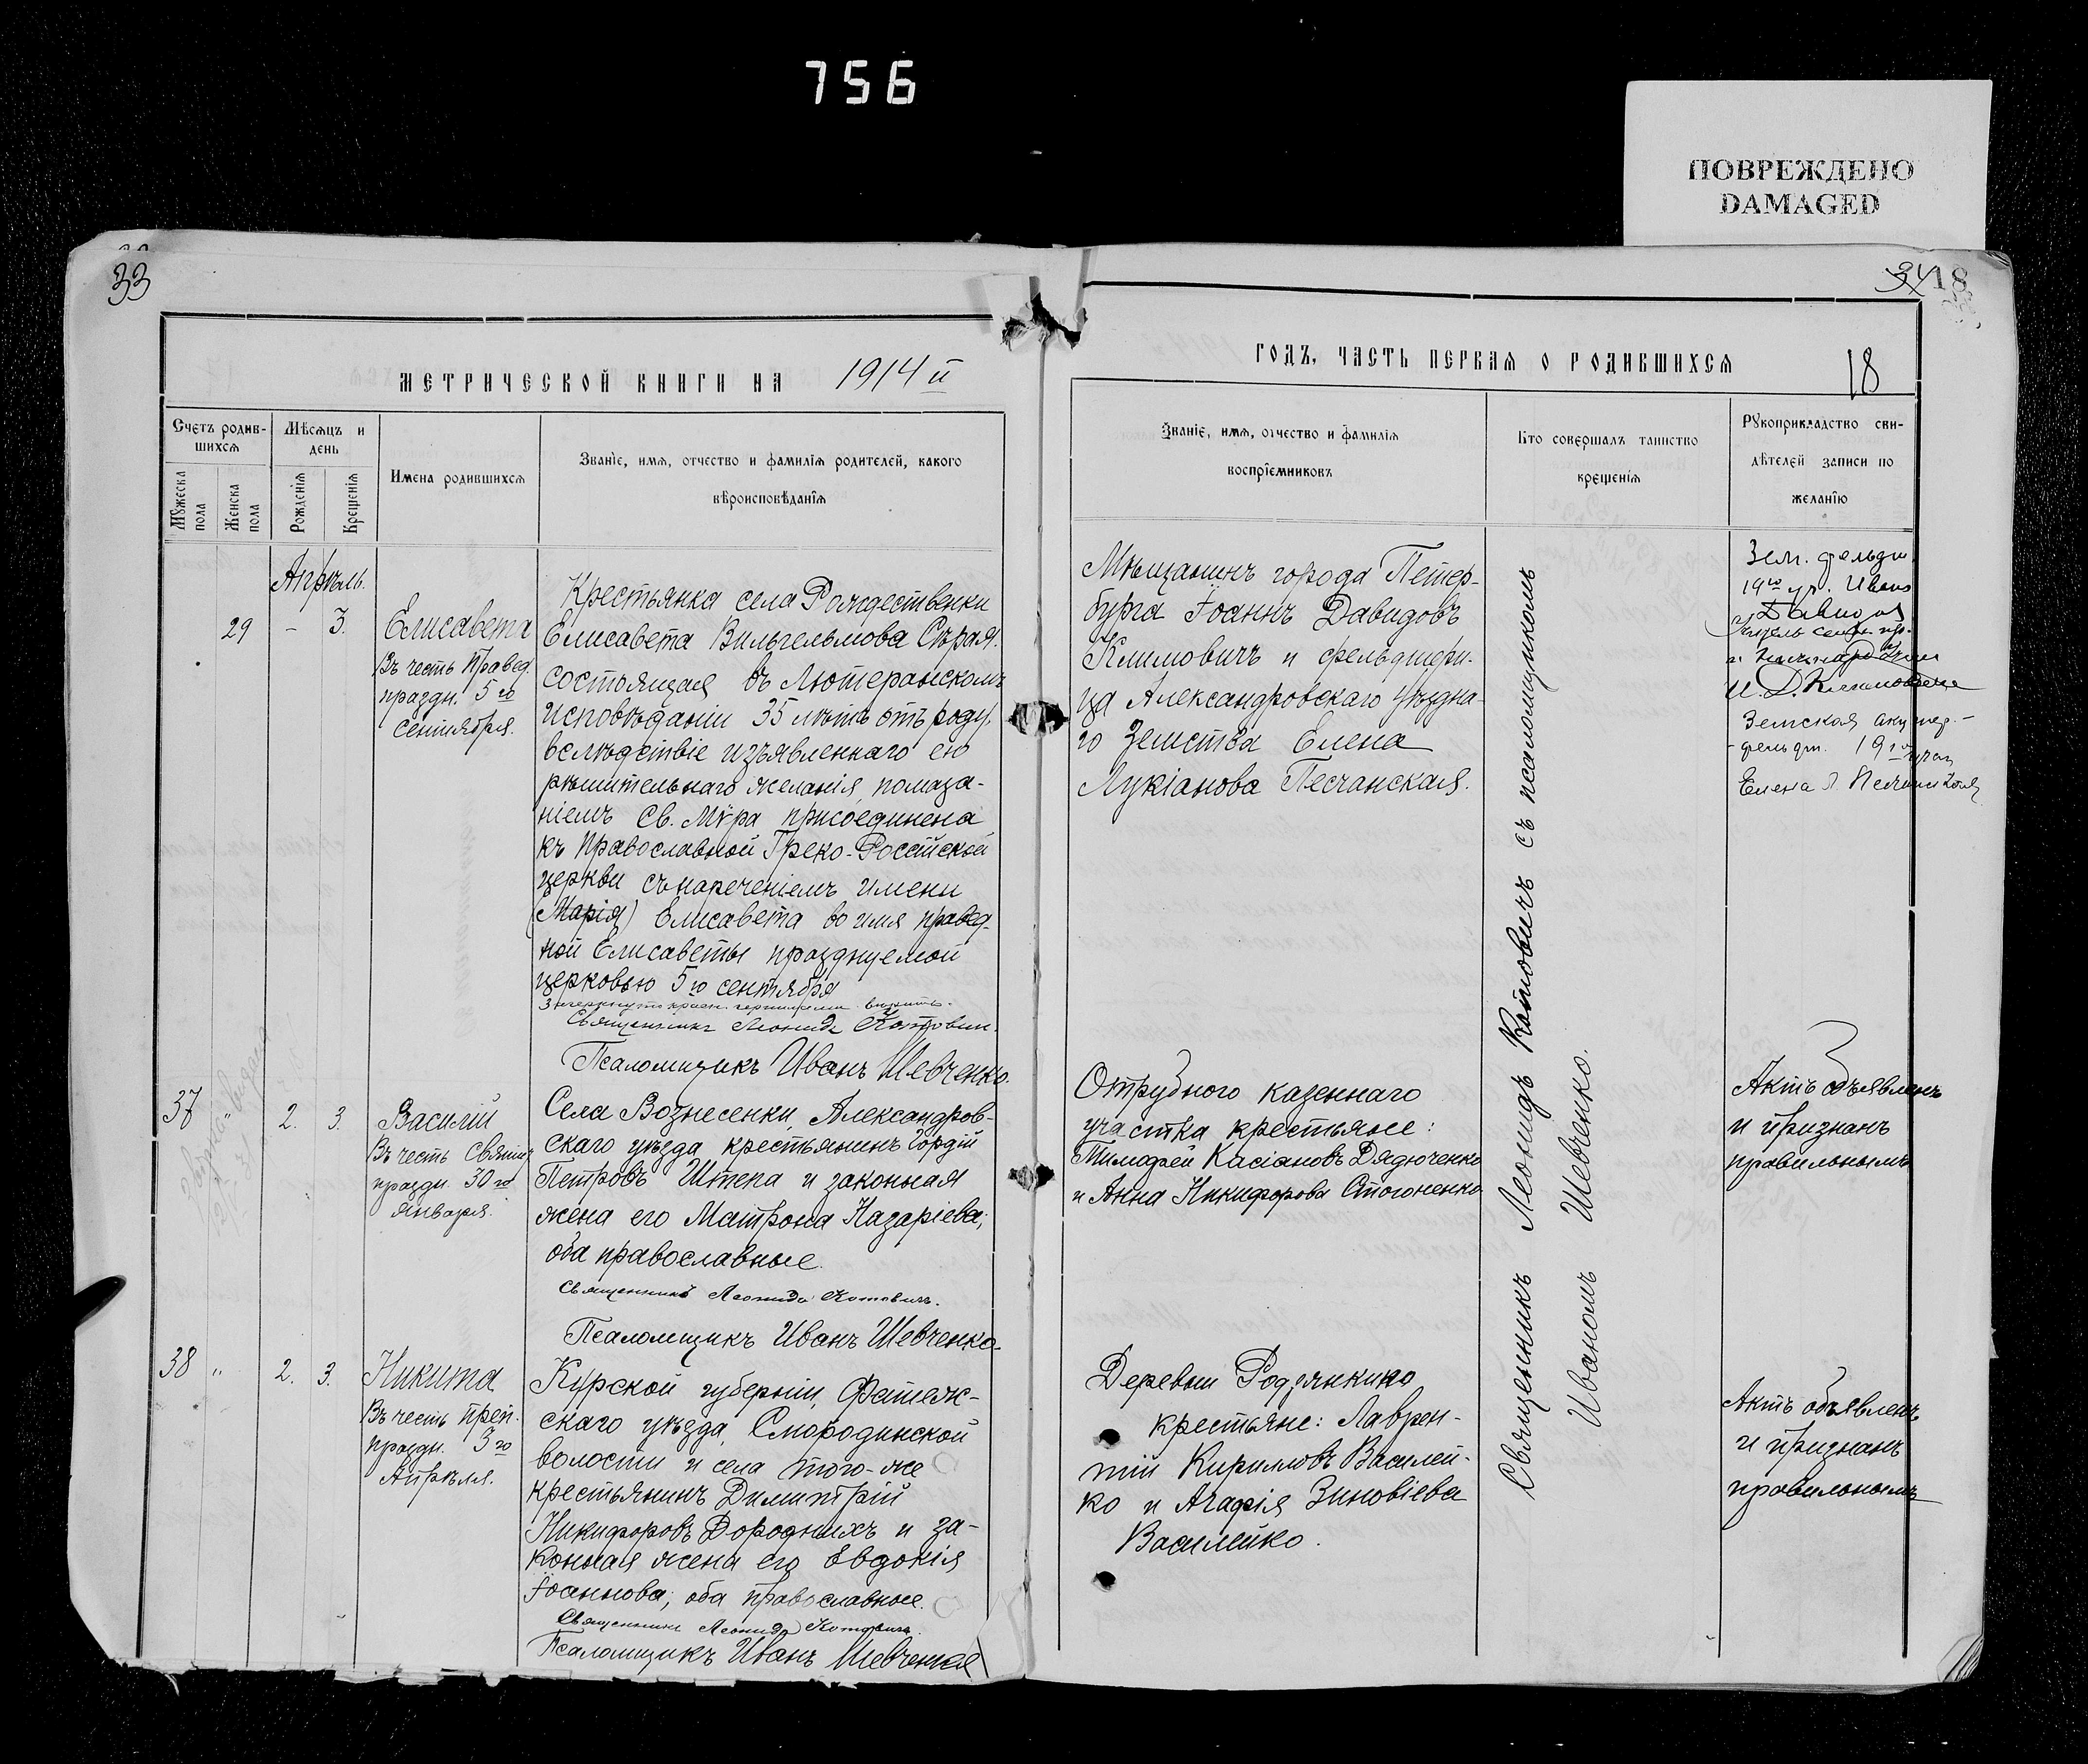 756
ПОВРЕЖДЕНО
DAMAGED
33
МЕТРИЧЕСКОЙ КНИГИ НА 1914 й
Счетъ родив-
шихся
Мѣсяцъ и
день
Мужеска
пола
Женска
пола
Рожденія
Крещенія
Имена родившихся
Званіе, имя, отчество и фамилія родителей, какого
вѣроисповѣданія
Апрѣль.
29 – 3.
Елисавета
Въ честь Правед.
праздн. 5 го
Сентября.
Крестьянка села Рождественки
Елисавета Вильгельмова Сѣрая.
состоящая въ Лютеранскомъ
исповѣданіи 35 лѣтъ отъ роду,
вслѣдствіе изъявленнаго ею
рѣшительнаго желанія, помаза-
ніемъ Св. Мѵра присоединена
къ Православной Греко-Россійской
церкви съ нареченіемъ имени
(Марія) Елисавета во имя правед-
ной Елисаветы празднуемой
церковью 5 го сентября
Священникъ Леонидъ Котовичъ.
Псаломщикъ Иванъ Шевченко.
37 " 2. 3.
Василій
Въ честь Святит.
праздн. 30 го
Января.
Села Вознесенки, Александров-
скаго уѣзда крестьянинъ Гордій
Петровъ Штепа и законная
жена его Матрона Назаріева;
оба православные.
Священникъ Леонидъ Котовичъ.
Псаломщикъ Иванъ Шевченко.
38 " 2. 3.
Никита
Въ честь Преп.
праздн. 3 го
Апрѣля.
Курской губерніи, Фатеж-
скаго уѣзда, Смородинской
волости и села того-же
крестьянинъ Димитрій
Никифоровъ Дородныхъ и за-
конная жена его Евдокія
Іоаннова; оба православные.
Священникъ Леонидъ Котовичъ.
Псаломщикъ Иванъ Шевченко
34 18
ГОДЪ, ЧАСТЬ ПЕРВАЯ О РОДИВШИХСЯ
18
Званіе, имя, отчество и фамилія
воспріемниковъ
Кто совершалъ таинство
крещенія
Рукоприкладство сви-
дѣтелей записи по
желанію
Мѣщанинъ города Петер-
бурга Іоаннъ Давидовъ
Климовичъ и фельдшери-
ца Александровскаго Уѣздна-
го Земства Елена
Лукіанова Песчанская.
Отрубного казеннаго
участка крестьяне:
Тимофей Касіановъ Дядюченко
и Анна Никифорова Стогоненко
Деревни Родзянкино
крестьяне: Лаврен-
тій Кирилловъ Василей-
ко и Агафія Зиновіева
Василейко.
Священникъ Леонидъ Котовичъ съ псаломщикомъ
Иваномъ Шевченко.
Зем. фельдш.
19 го уч. Ивано
Давидов
И. Д. Климовичъ
Земская акушер.-
фельдш. 19 го
Елена Л. Песчанская
Актъ объявленъ
и признанъ
правильнымъ
Актъ объявленъ
и признанъ
правильнымъ